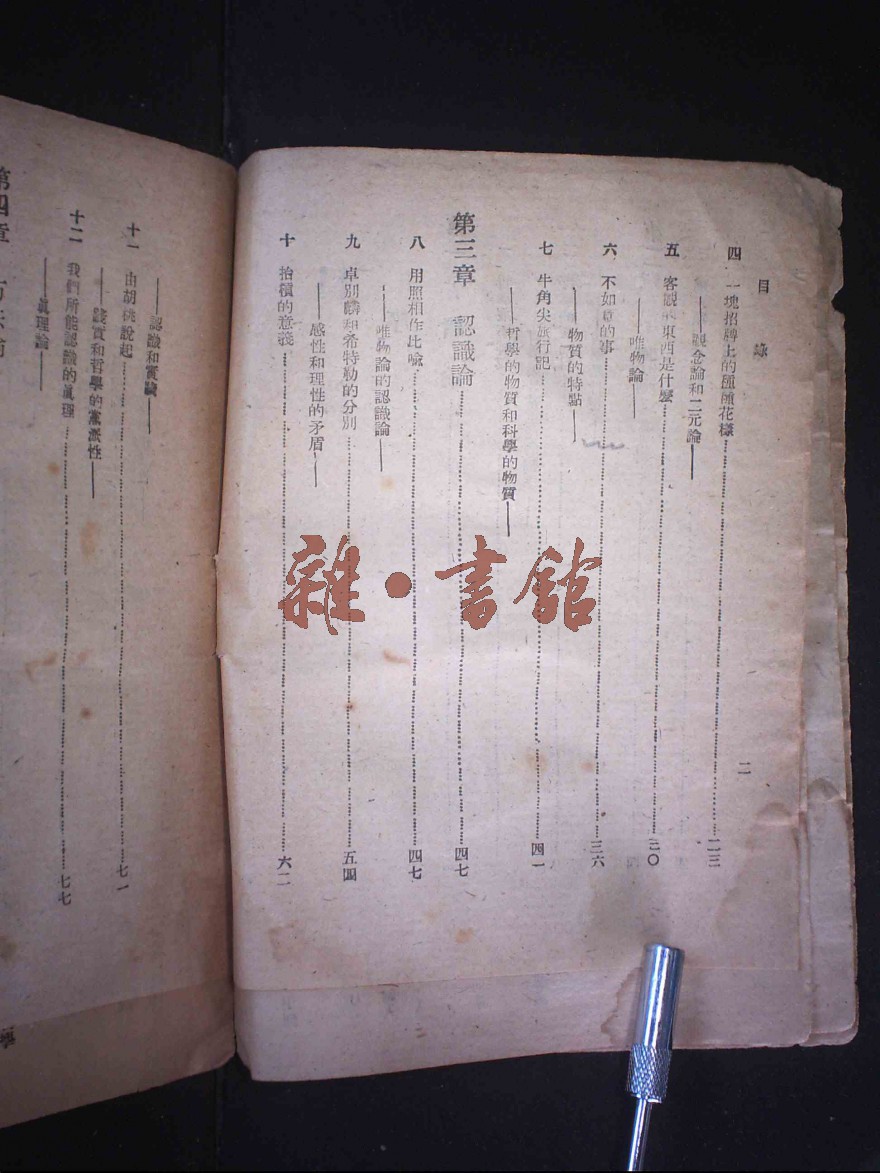 目錄
二
四 一塊招牌上的種種花樣 二三
——觀念論和二元論——
五 客觀的東西是什麼 三〇
——唯物論——
六 不如意的事 三六
——物質的特點——
七 牛角尖旅行記 四一
——哲學的物質和科學的物質——
第三章 認識論 四七
八 用照相作比喻 四七
——唯物論的認識論——
九 卓別麟和希特勒的分別 五四
——感性和理性的矛盾——
十 抬槓的意義 六二
——認識和實踐——
十一 由胡桃說起 七一
——踐實和哲學的黨派性——
十二 我們所能認識的真理 七七
——真理論——
第四章 方法論
雜·書館